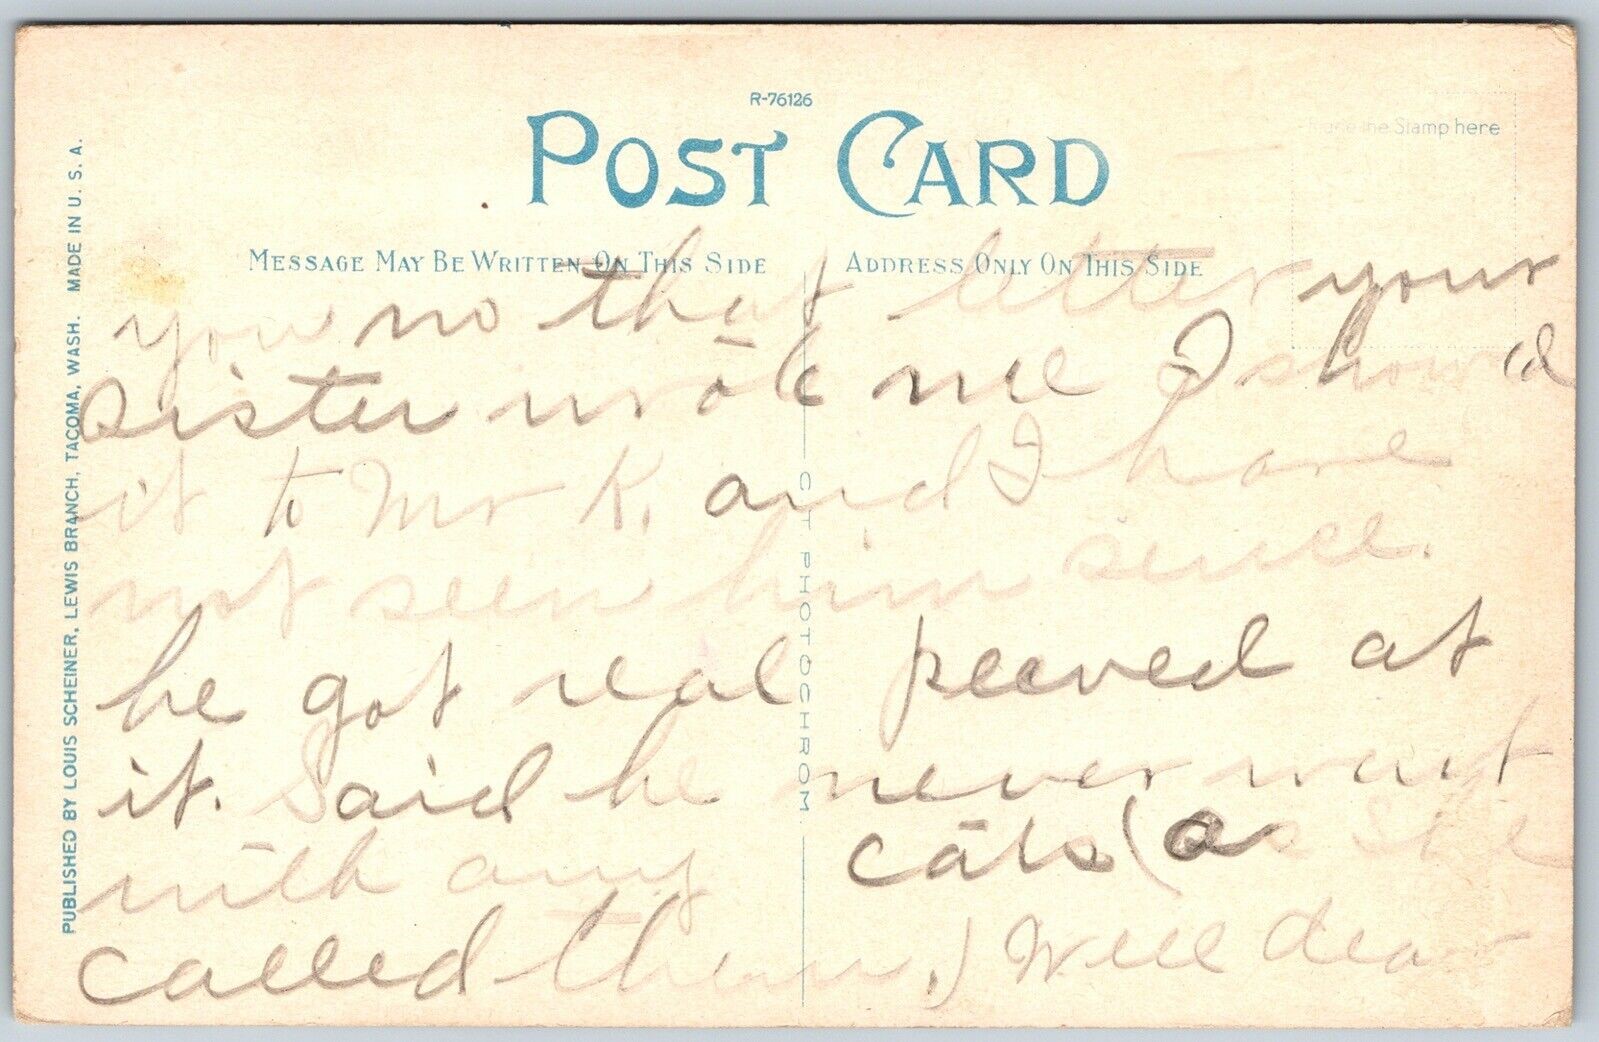 R-76126
POST CARD
Place the Stamp here
MESSAGE MAY BE WRITTEN ON THIS SIDE
ADDRESS ONLY ON THIS SIDE
PUBLISHED BY LOUIS SCHEINER, LEWIS BRANCH, TACOMA, WASH. MADE IN U. S. A.
C. T. PHOTOCHROM
you no that letter your
sister wrote me I show'd
it to Mr K. and I have
not seen him since.
he got real peeved at
it. Said he never went
with any cats (as she
called them.) Well dear